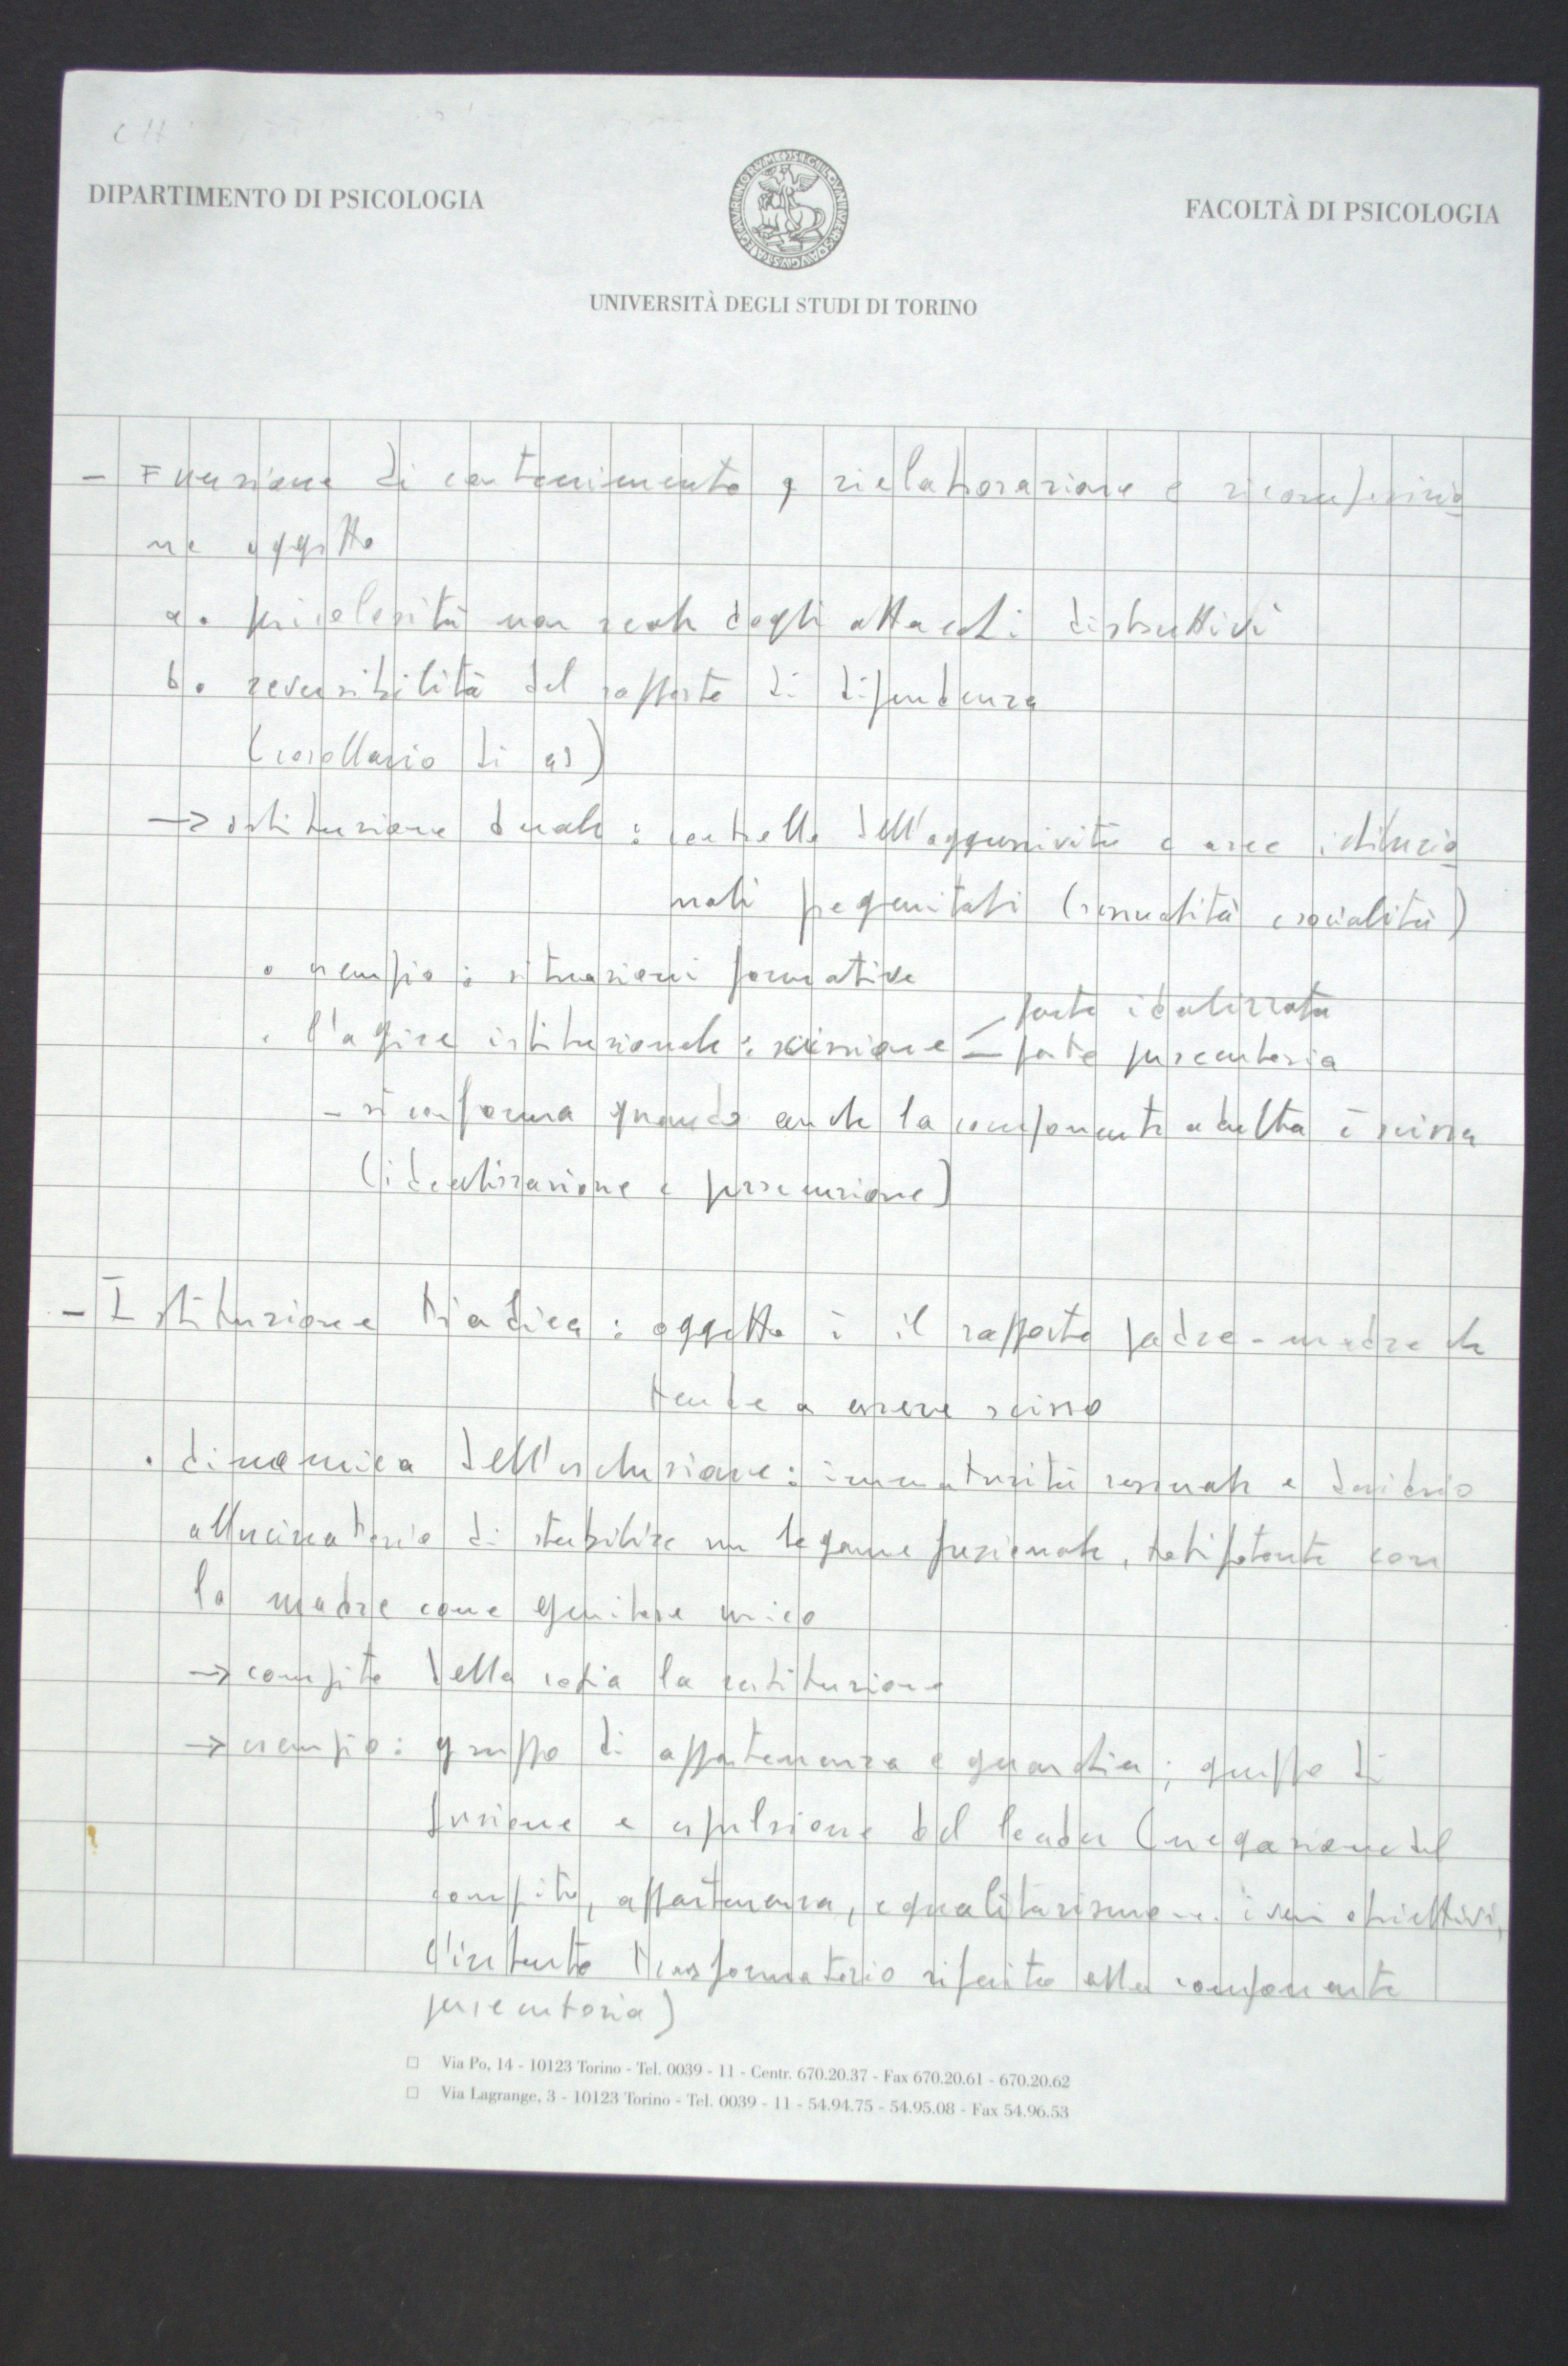 DIPARTIMENTO DI PSICOLOGIA
FACOLTÀ DI PSICOLOGIA
UNIVERSITÀ DEGLI STUDI DI TORINO
- Funzione di contenimento, rielaborazione e ricomposizio
ne oggetto
a. pericolosità non reale degli attacchi distruttivi
b. reversibilità del rapporto di dipendenza
(corollario di a)
→ istituzione duale: controllo dell'aggressività e aree istituzio
nali pregenitali (sessualità e socialità)
• esempio: situazioni formative
parte idealizzata
• l'agire istituzionale: scissione — parte persecutoria
- si conferma quando anche la componente adulta è scissa
(idealizzazione e persecuzione)
- Istituzione triadica: oggetto è il rapporto padre-madre che
tende a essere scisso
• dinamica dell'esclusione: immaturità sessuale e desiderio
allucinatorio di stabilire un legame fusionale, totipotente con
la madre come genitore unico
→ compito della la restituzione
→ esempio: gruppo di appartenenza e gerarchia; gruppo di
fusione e espulsione del leader (negazione del
compito, appartenenza, egualitarismo ... i veri obiettivi,
l'intento trasformatorio riferito alla componente
persecutoria)
Via Po, 14 - 10123 Torino - Tel. 0039 - 11 - Centr. 670.20.37 - Fax 670.20.61 - 670.20.62
Via Lagrange, 3 - 10123 Torino - Tel. 0039 - 11 - 54.94.75 - 54.95.08 - Fax 54.96.53